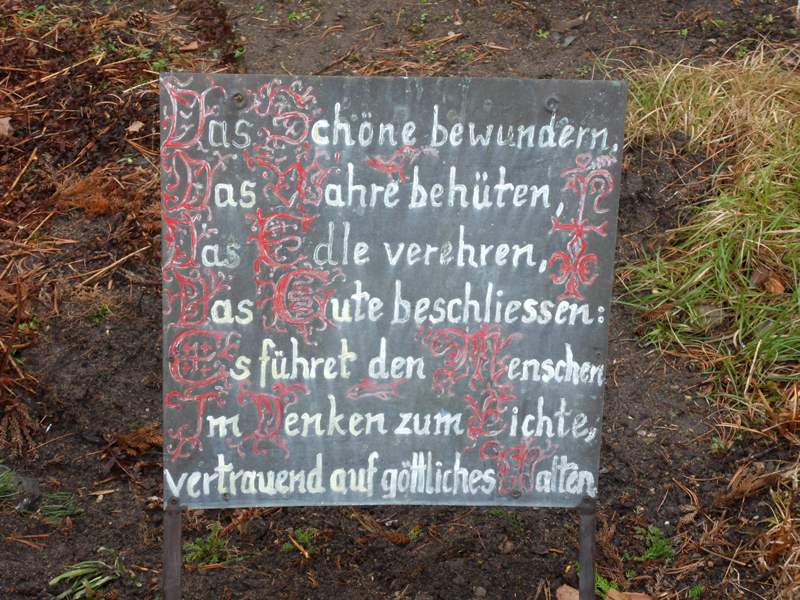 Das Schöne bewundern,
Das Wahre behüten,
Das Edle verehren,
Das Gute beschliessen:
Es führet den Menschen
Im Denken zum Lichte,
vertrauend auf göttliches Walten